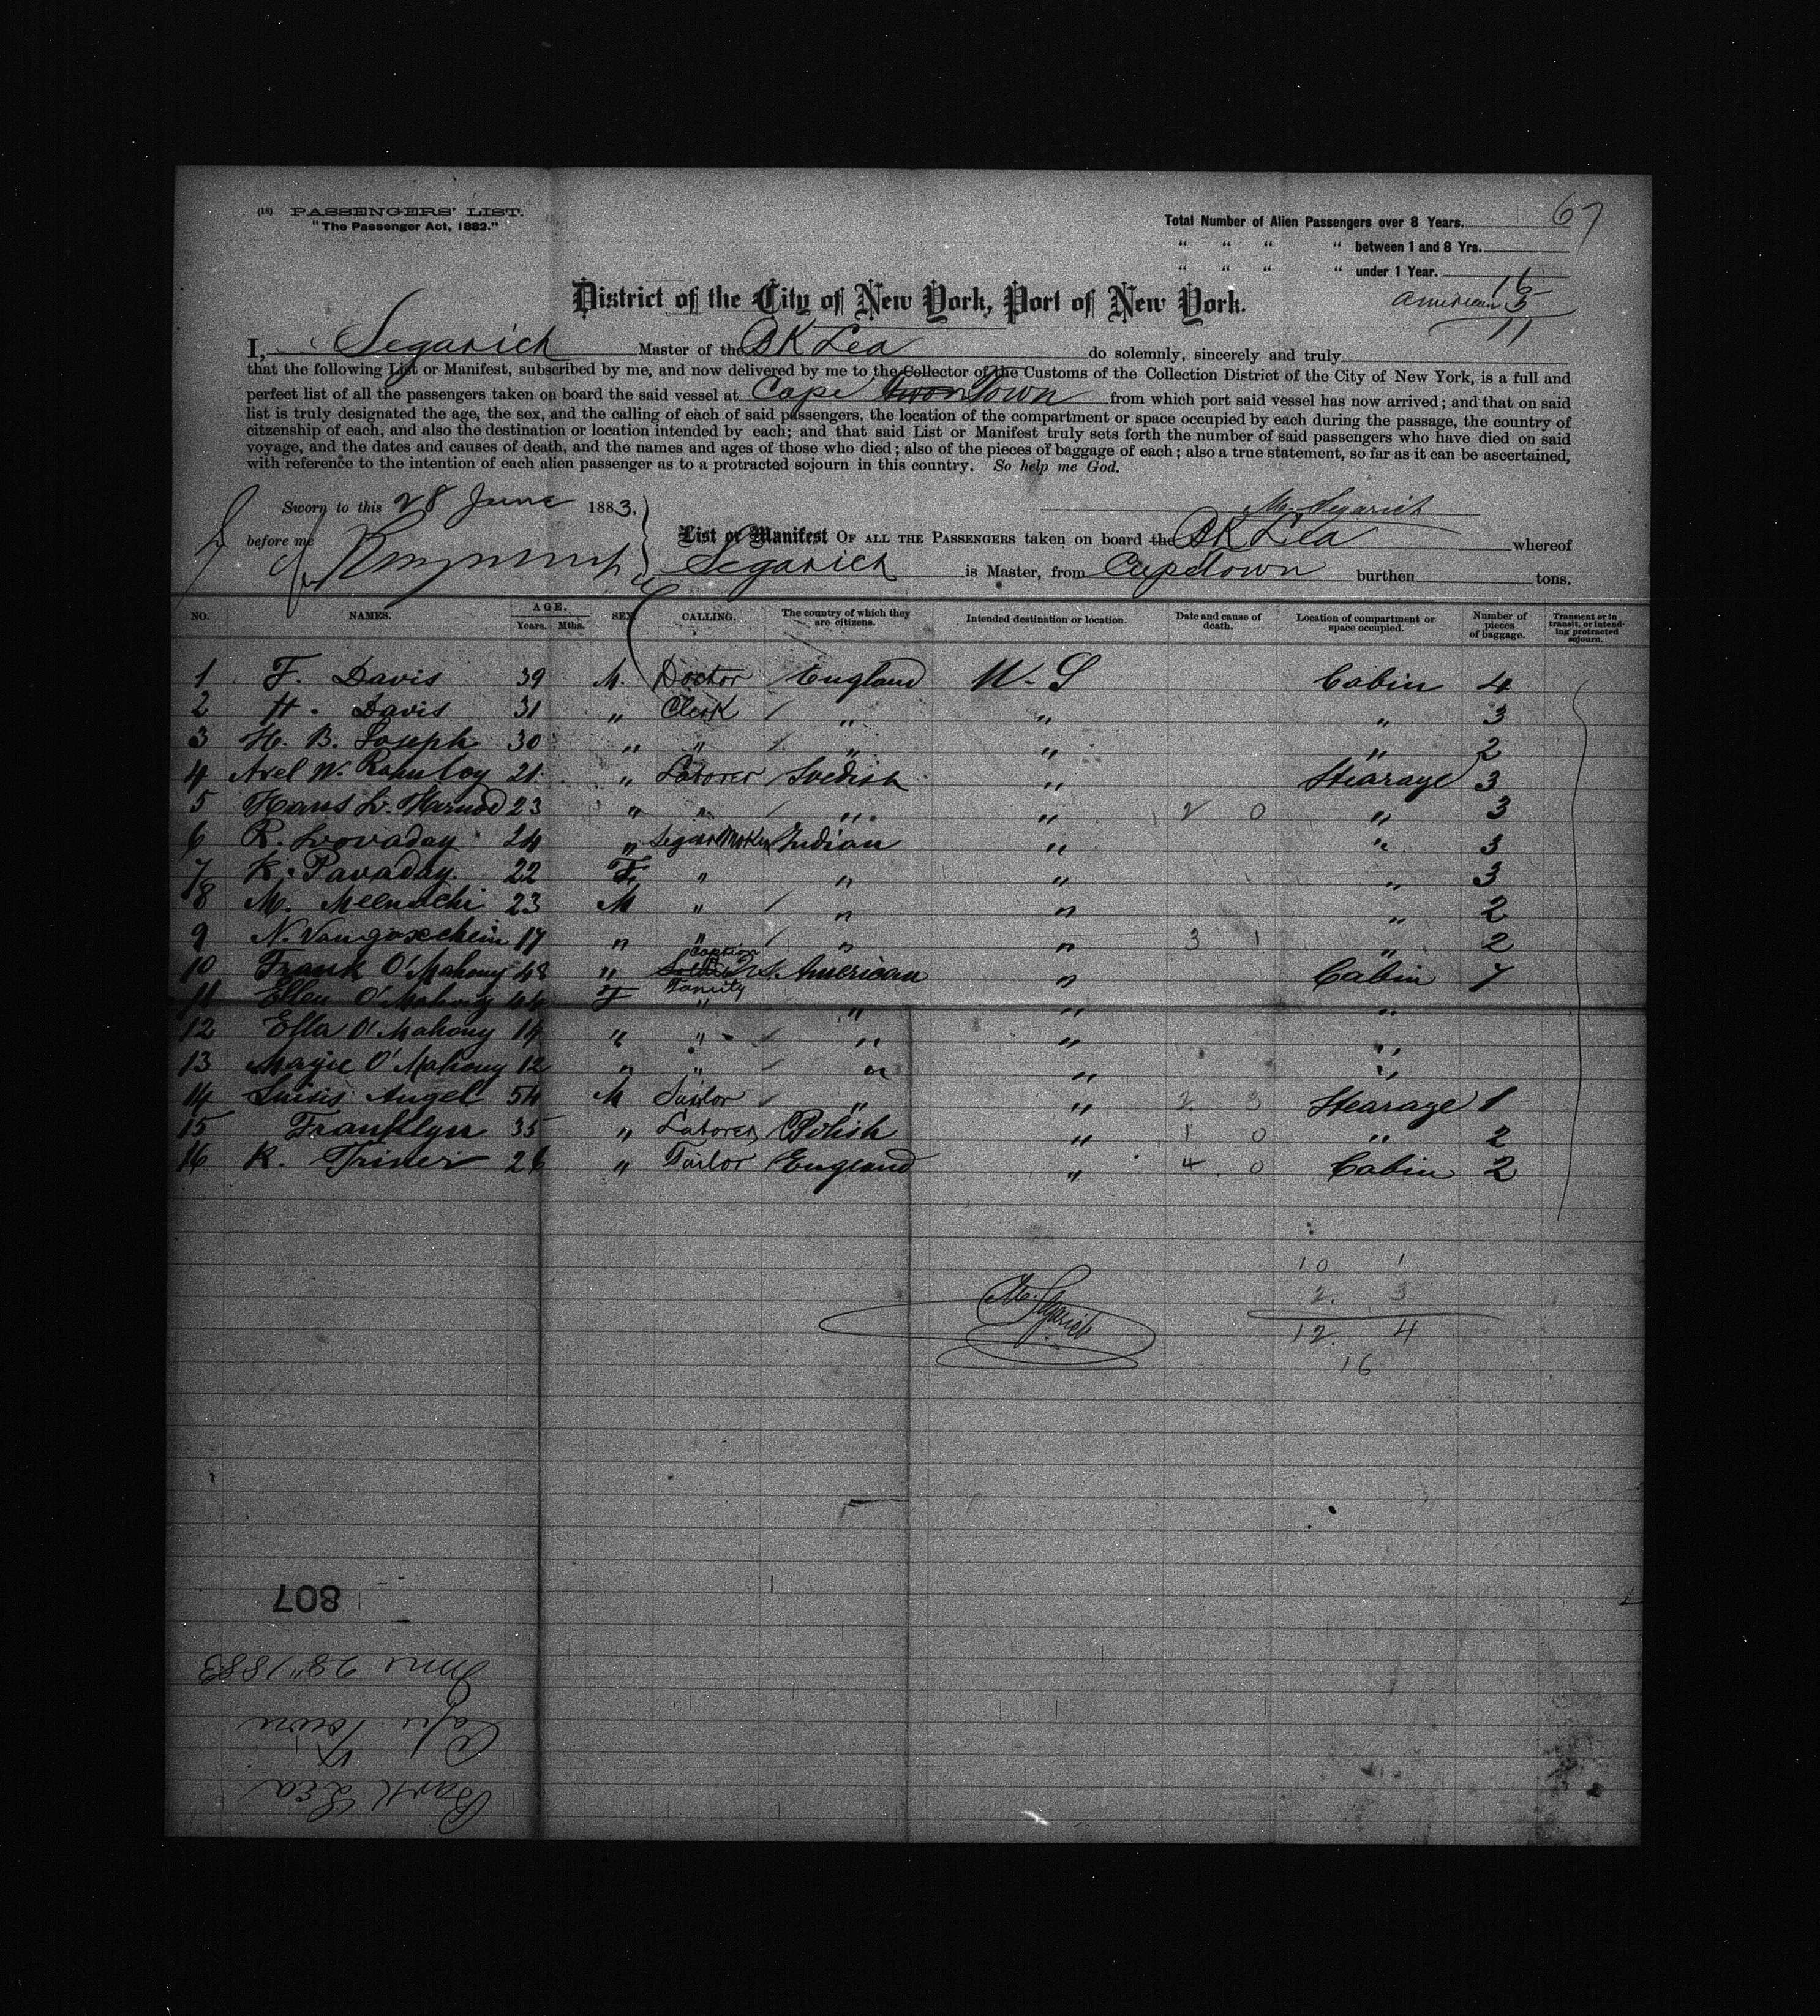 (18) PASSENGERS' LIST.
"The Passenger Act, 1882."
Total Number of Alien Passengers over 8 Years. 67
" " " " between 1 and 8 Yrs.
" " " " under 1 Year.
16
American 5
11
District of the City of New York, Port of New York.
I, Segarich Master of the BK Lea do solemnly, sincerely and truly
that the following List or Manifest, subscribed by me, and now delivered by me to the Collector of the Customs of the Collection District of the City of New York, is a full and
perfect list of all the passengers taken on board the said vessel at Cape Town from which port said vessel has now arrived; and that on said
list is truly designated the age, the sex, and the calling of each of said passengers, the location of the compartment or space occupied by each during the passage, the country of
citzenship of each, and also the destination or location intended by each; and that said List or Manifest truly sets forth the number of said passengers who have died on said
voyage, and the dates and causes of death, and the names and ages of those who died; also of the pieces of baggage of each; also a true statement, so far as it can be ascertained,
with reference to the intention of each alien passenger as to a protracted sojourn in this country. So help me God.
Sworn to this 28 June 1883.
M. Segarich
before me
List or Manifest OF ALL THE PASSENGERS taken on board the BK Lea whereof
Segarich is Master, from Capetown burthen tons.
NO. NAMES. AGE. Years. Mths. SEX. CALLING. The country of which they are citizens. Intended destination or location. Date and cause of death. Location of compartment or space occupied. Number of pieces of baggage. Transient or in transit, or intending protracted sojourn.
1 F. Davis 39 M. Doctor England U. S Cabin 4
2 H. Davis 31 " Clerk " " " 3
3 H. B. Joseph 30 " " " " " 2
4 Axel W. 21 " Laborer Swedish " Stearage 3
5 Hans L. 23 " " " " 2 0 " 3
6 R. Lovaday 24 " Segar Maker Indian " " 3
7 K. Pavaday 22 F. " " " " 3
8 M. Meenachi 23 M " " " " 2
9 N. 17 " " " " 3 1 " 2
10 Frank O'Mahony 48 " American " Cabin 7
11 Ellen O'Mahony 44 F " " " "
12 Ella O'Mahony 14 " " " " "
13 Magie O'Mahony 12 " " " " "
14 Angel 54 M Sailor " " 2 3 Stearage 1
15 Franklyn 35 " Laborer Polish " 1 0 " 2
16 K. Triner 26 " Tailor England " 4 0 Cabin 2
10 1
2. 3
12. 4
16
M. Segarich
807
June 28" 1883
Cape Town
Bark Lea